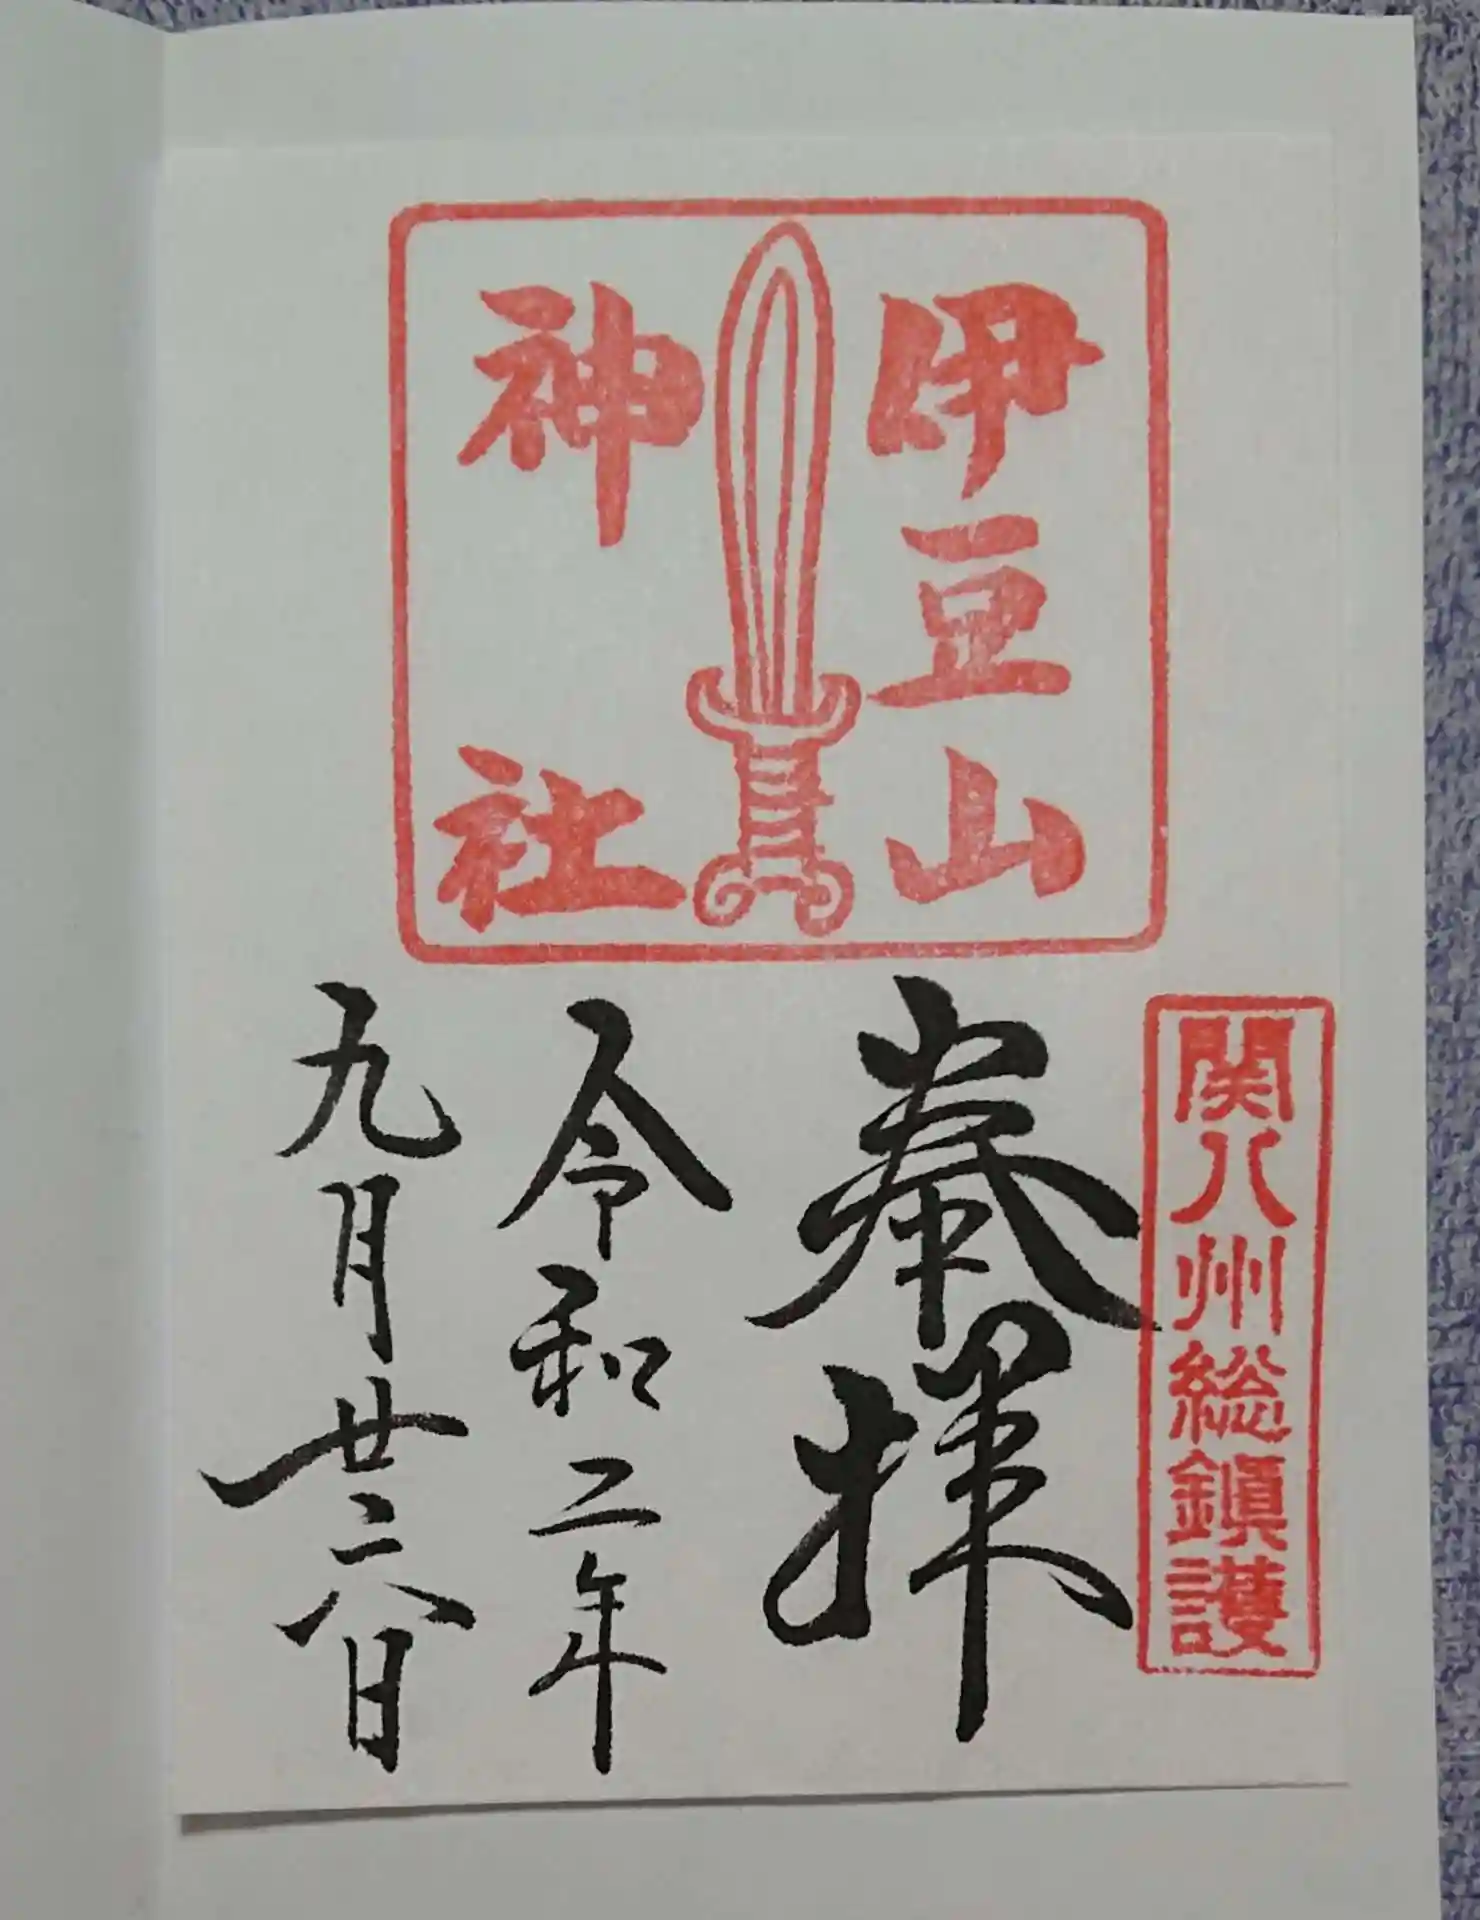 伊豆山
神社
関八州総鎮護
奉拝
令和二年
九月廿六日